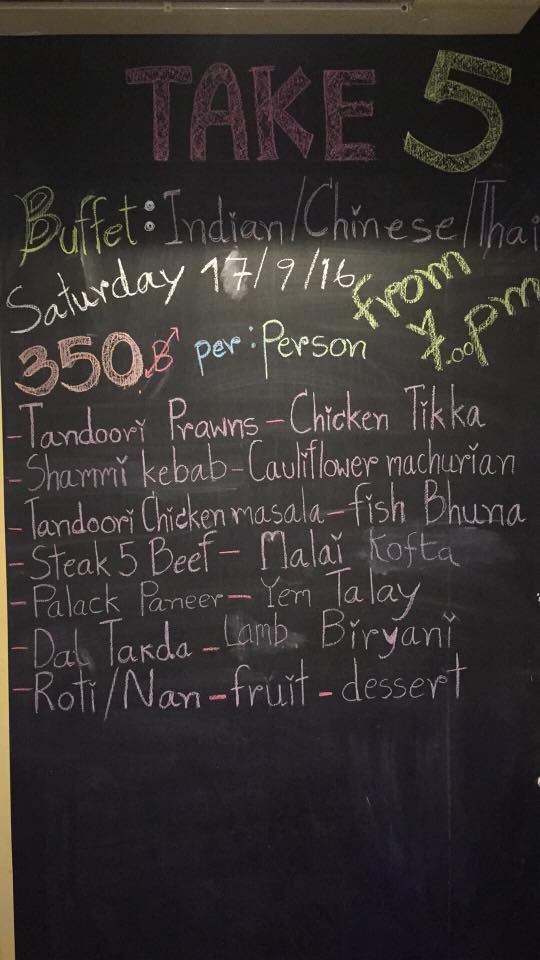 TAKE 5
Buffet: Indian/Chinese/Thai
Saturday 17/9/16 from
350.B per: Person 7.00pm
- Tandoori Prawns - Chicken Tikka
- Shammi kebab - Cauliflower machurian
- Tandoori Chicken masala - fish Bhuna
- Steak 5 Beef - Malai Kofta
- Palack Paneer - Yem Talay
- Dal Takda - Lamb Biryani
- Roti/Nan - fruit - dessert